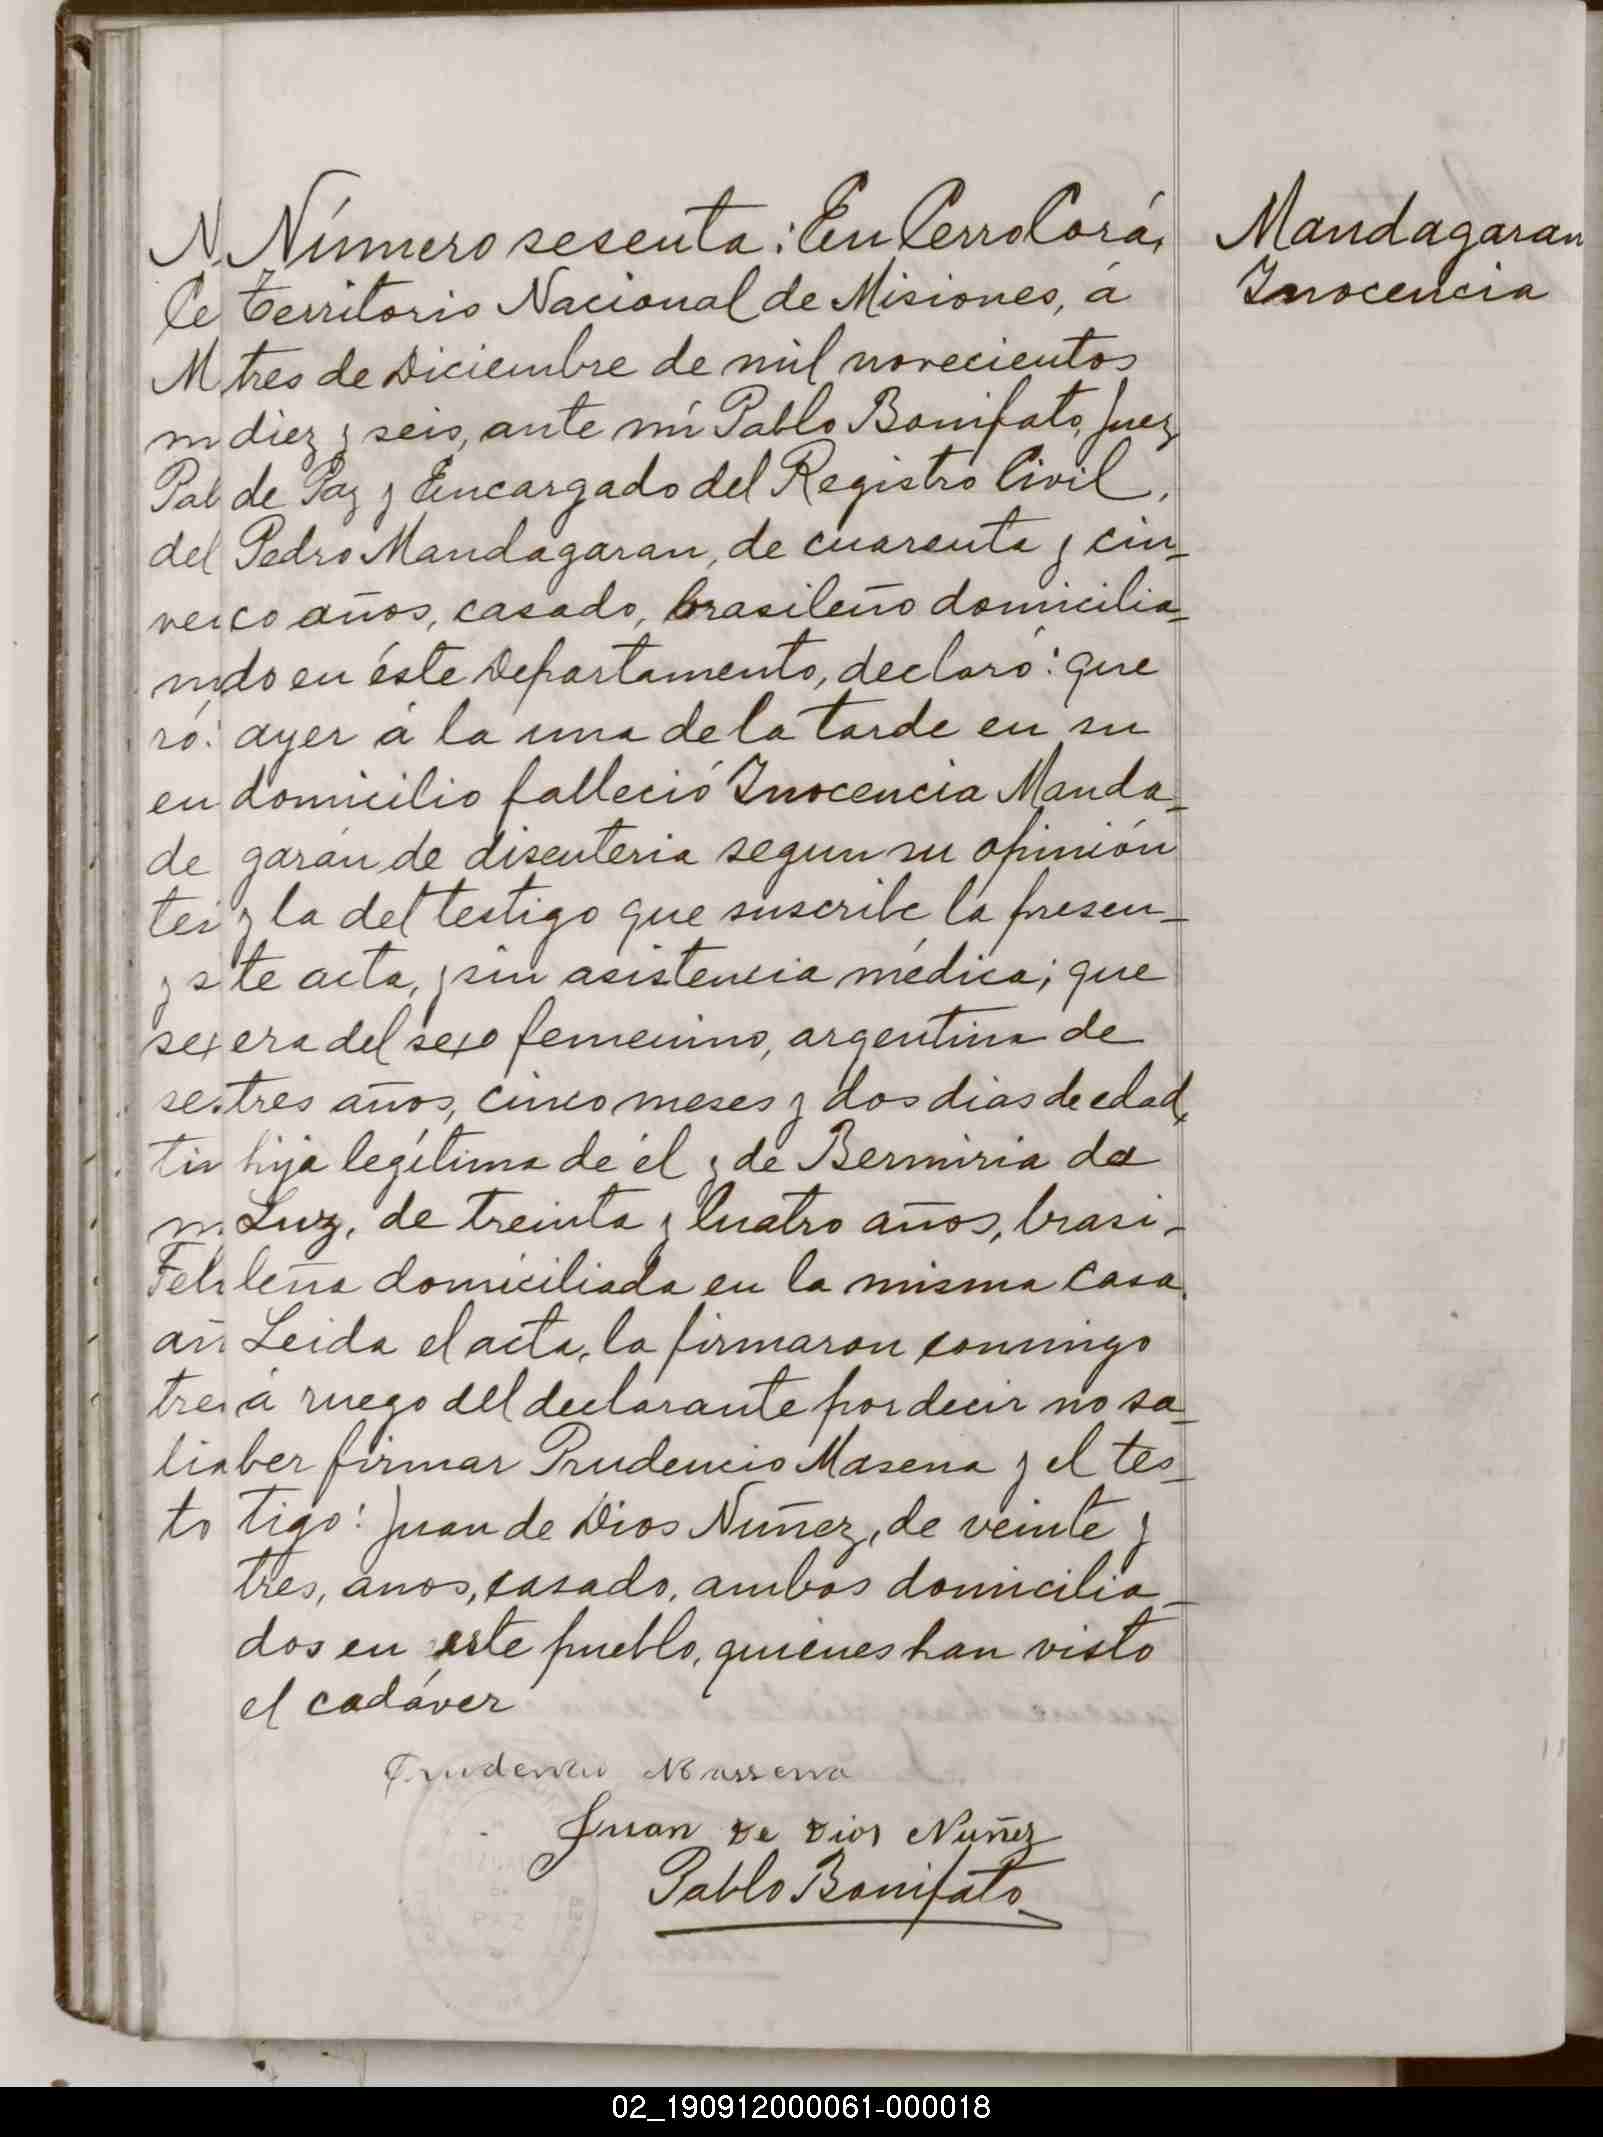 Número sesenta: En Cerro Corá,
Territorio Nacional de Misiones, á
tres de Diciembre de mil novecientos
diez y seis, ante mí Pablo Bonifato, Juez
de Paz y Encargado del Registro Civil,
Pedro Mandagaran, de cuarenta y cin-
co años, casado, brasileño domicilia-
do en éste Departamento, declaró: que
ayer á la una de la tarde en su
domicilio falleció Inocencia Manda-
garán de disenteria segun su opinión
y la del testigo que suscribe la presen-
te acta, y sin asistencia médica; que
era del sexo femenino, argentina de
tres años, cinco meses y dos dias de edad,
hija legítima de él y de Bermiria da
Luz, de treinta y cuatro años, brasi-
leña domiciliada en la misma casa.
Leida el acta, la firmaron conmigo
á ruego del declarante por decir no sa-
ber firmar Prudencio Masena y el tes-
tigo: Juan de Dios Nuñez, de veinte y
tres, anos, casado, ambos domicilia-
dos en este pueblo, quiénes han visto
el cadáver
Prudencio Massena
Juan de Dios Nuñez
Pablo Bonifato
Mandagaran
Inocencia
N
Ce
M
m
Pab
del
vei
m
ró:
en
de
tes
y s
sex
ses
tin
m
Feli
añ
tre
lia
to
02_190912000061-000018